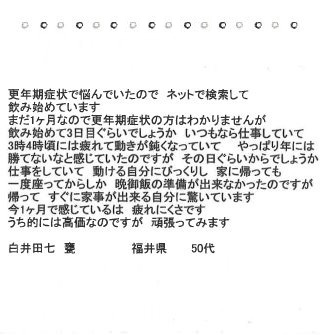 更年期症状で悩んでいたので ネットで検索して
飲み始めています
まだ1ヶ月なので更年期症状の方はわかりませんが
飲み始めて3日目ぐらいでしょうか いつもなら仕事していて
3時4時頃には疲れて動きが鈍くなっていて やっぱり年には
勝てないなと感じていたのですが その日ぐらいからでしょうか
仕事をしていて 動ける自分にびっくりし 家に帰っても
一度座ってからしか 晩御飯の準備が出来なかったのですが
帰って すぐに家事が出来る自分に驚いています
今1ヶ月で感じているは 疲れにくさです
うち的には高価なのですが 頑張ってみます
白井田七 甕 福井県 50代